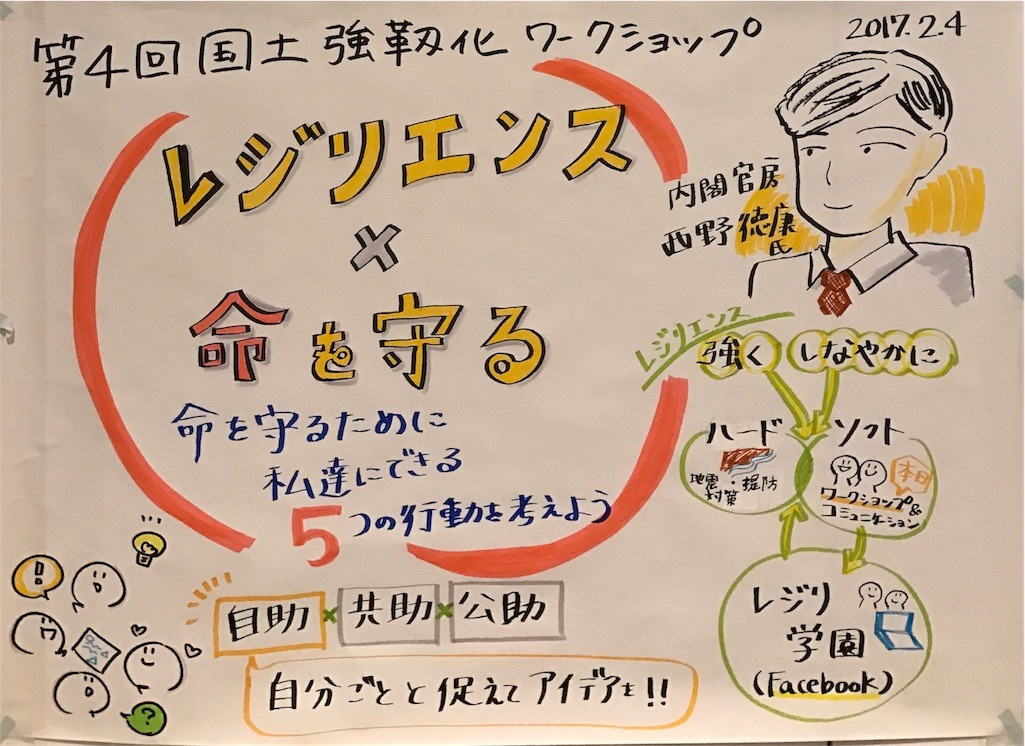 第4回国土強靱化ワークショップ
2017.2.4
レジリエンス
×
命を守る
命を守るために
私達にできる
5つの行動を考えよう
自助×共助×公助
自分ごとと促えてアイデアを!!
内閣官房
西野徳康
氏
レジリエンス
強く しなやかに
ハード
地震・堤防
対策
ソフト
本日
ワークショップ&
コミュニケーション
レジリ
学園
(Facebook)
!!
?